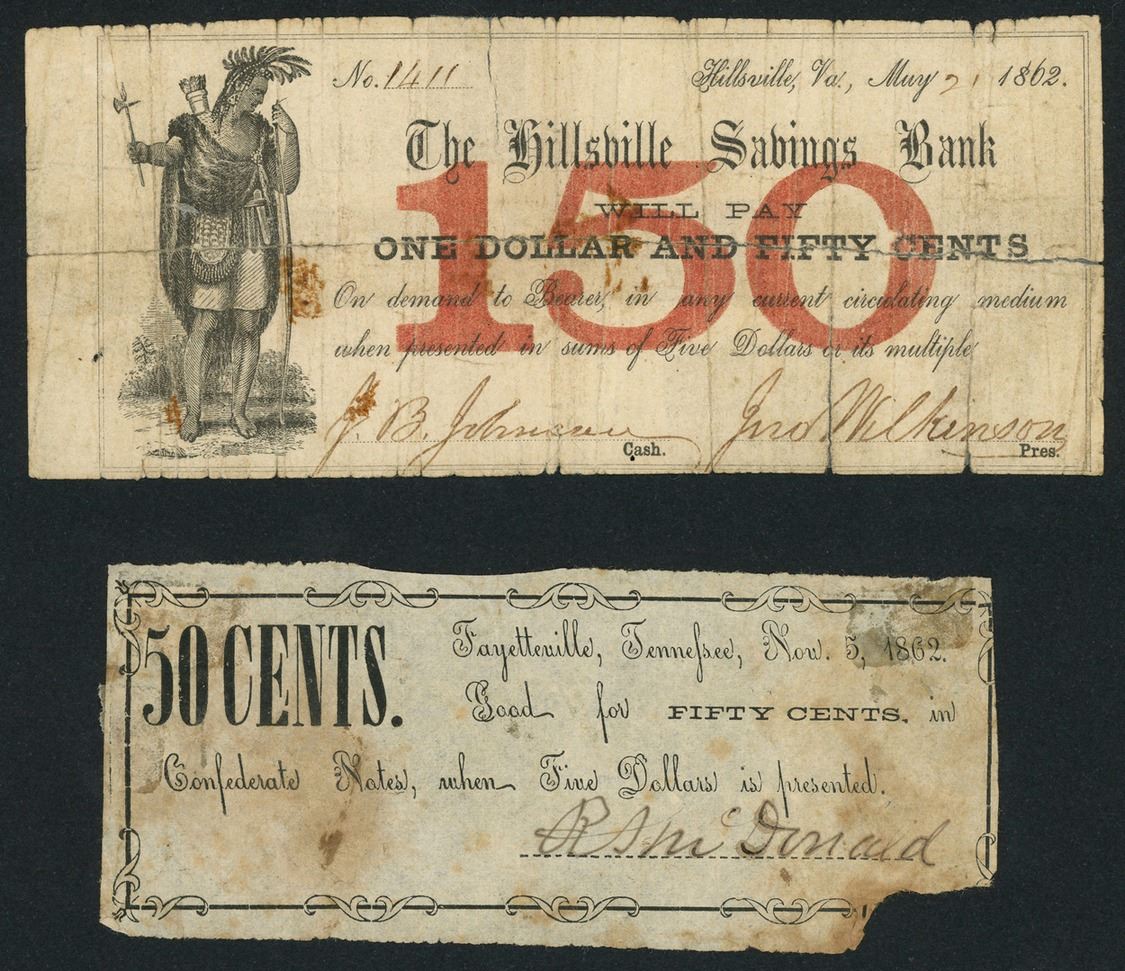 No. 1411 Hillsville, Va., May 21 1862.
The Hillsville Savings Bank
150
WILL PAY
ONE DOLLAR AND FIFTY CENTS
On demand to Bearer, in any current circulating medium
when presented in sums of Five Dollars or its multiple
J. B. Johnson Cash. Jno Wilkinson Pres.
50 CENTS. Fayetteville, Tenneſsee, Nov. 5, 1862.
Good for FIFTY CENTS, in
Confederate Notes, when Five Dollars is presented.
McDonald